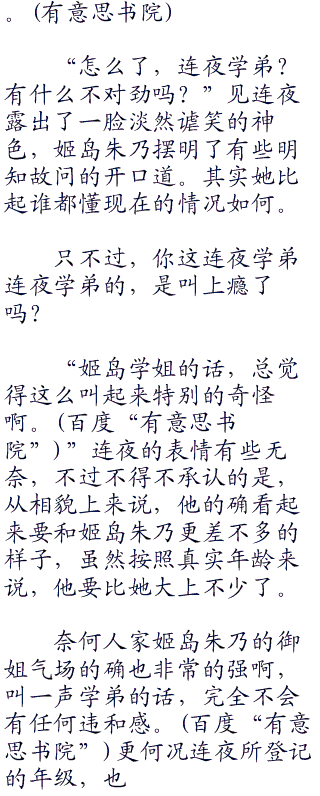 。（有意思书院）
“怎么了，连夜学弟？
有什么不对劲吗？”见连夜
露出了一脸淡然谑笑的神
色，姬岛朱乃摆明了有些明
知故问的开口道。其实她比
起谁都懂现在的情况如何。
只不过，你这连夜学弟
连夜学弟的，是叫上瘾了
吗？
“姬岛学姐的话，总觉
得这么叫起来特别的奇怪
啊。（百度“有意思书
院”）”连夜的表情有些无
奈，不过不得不承认的是，
从相貌上来说，他的确看起
来要和姬岛朱乃更差不多的
样子，虽然按照真实年龄来
说，他要比她大上不少了。
奈何人家姬岛朱乃的御
姐气场的确也非常的强啊，
叫一声学弟的话，完全不会
有任何违和感。（百度“有意
思书院”）更何况连夜所登记
的年级，也